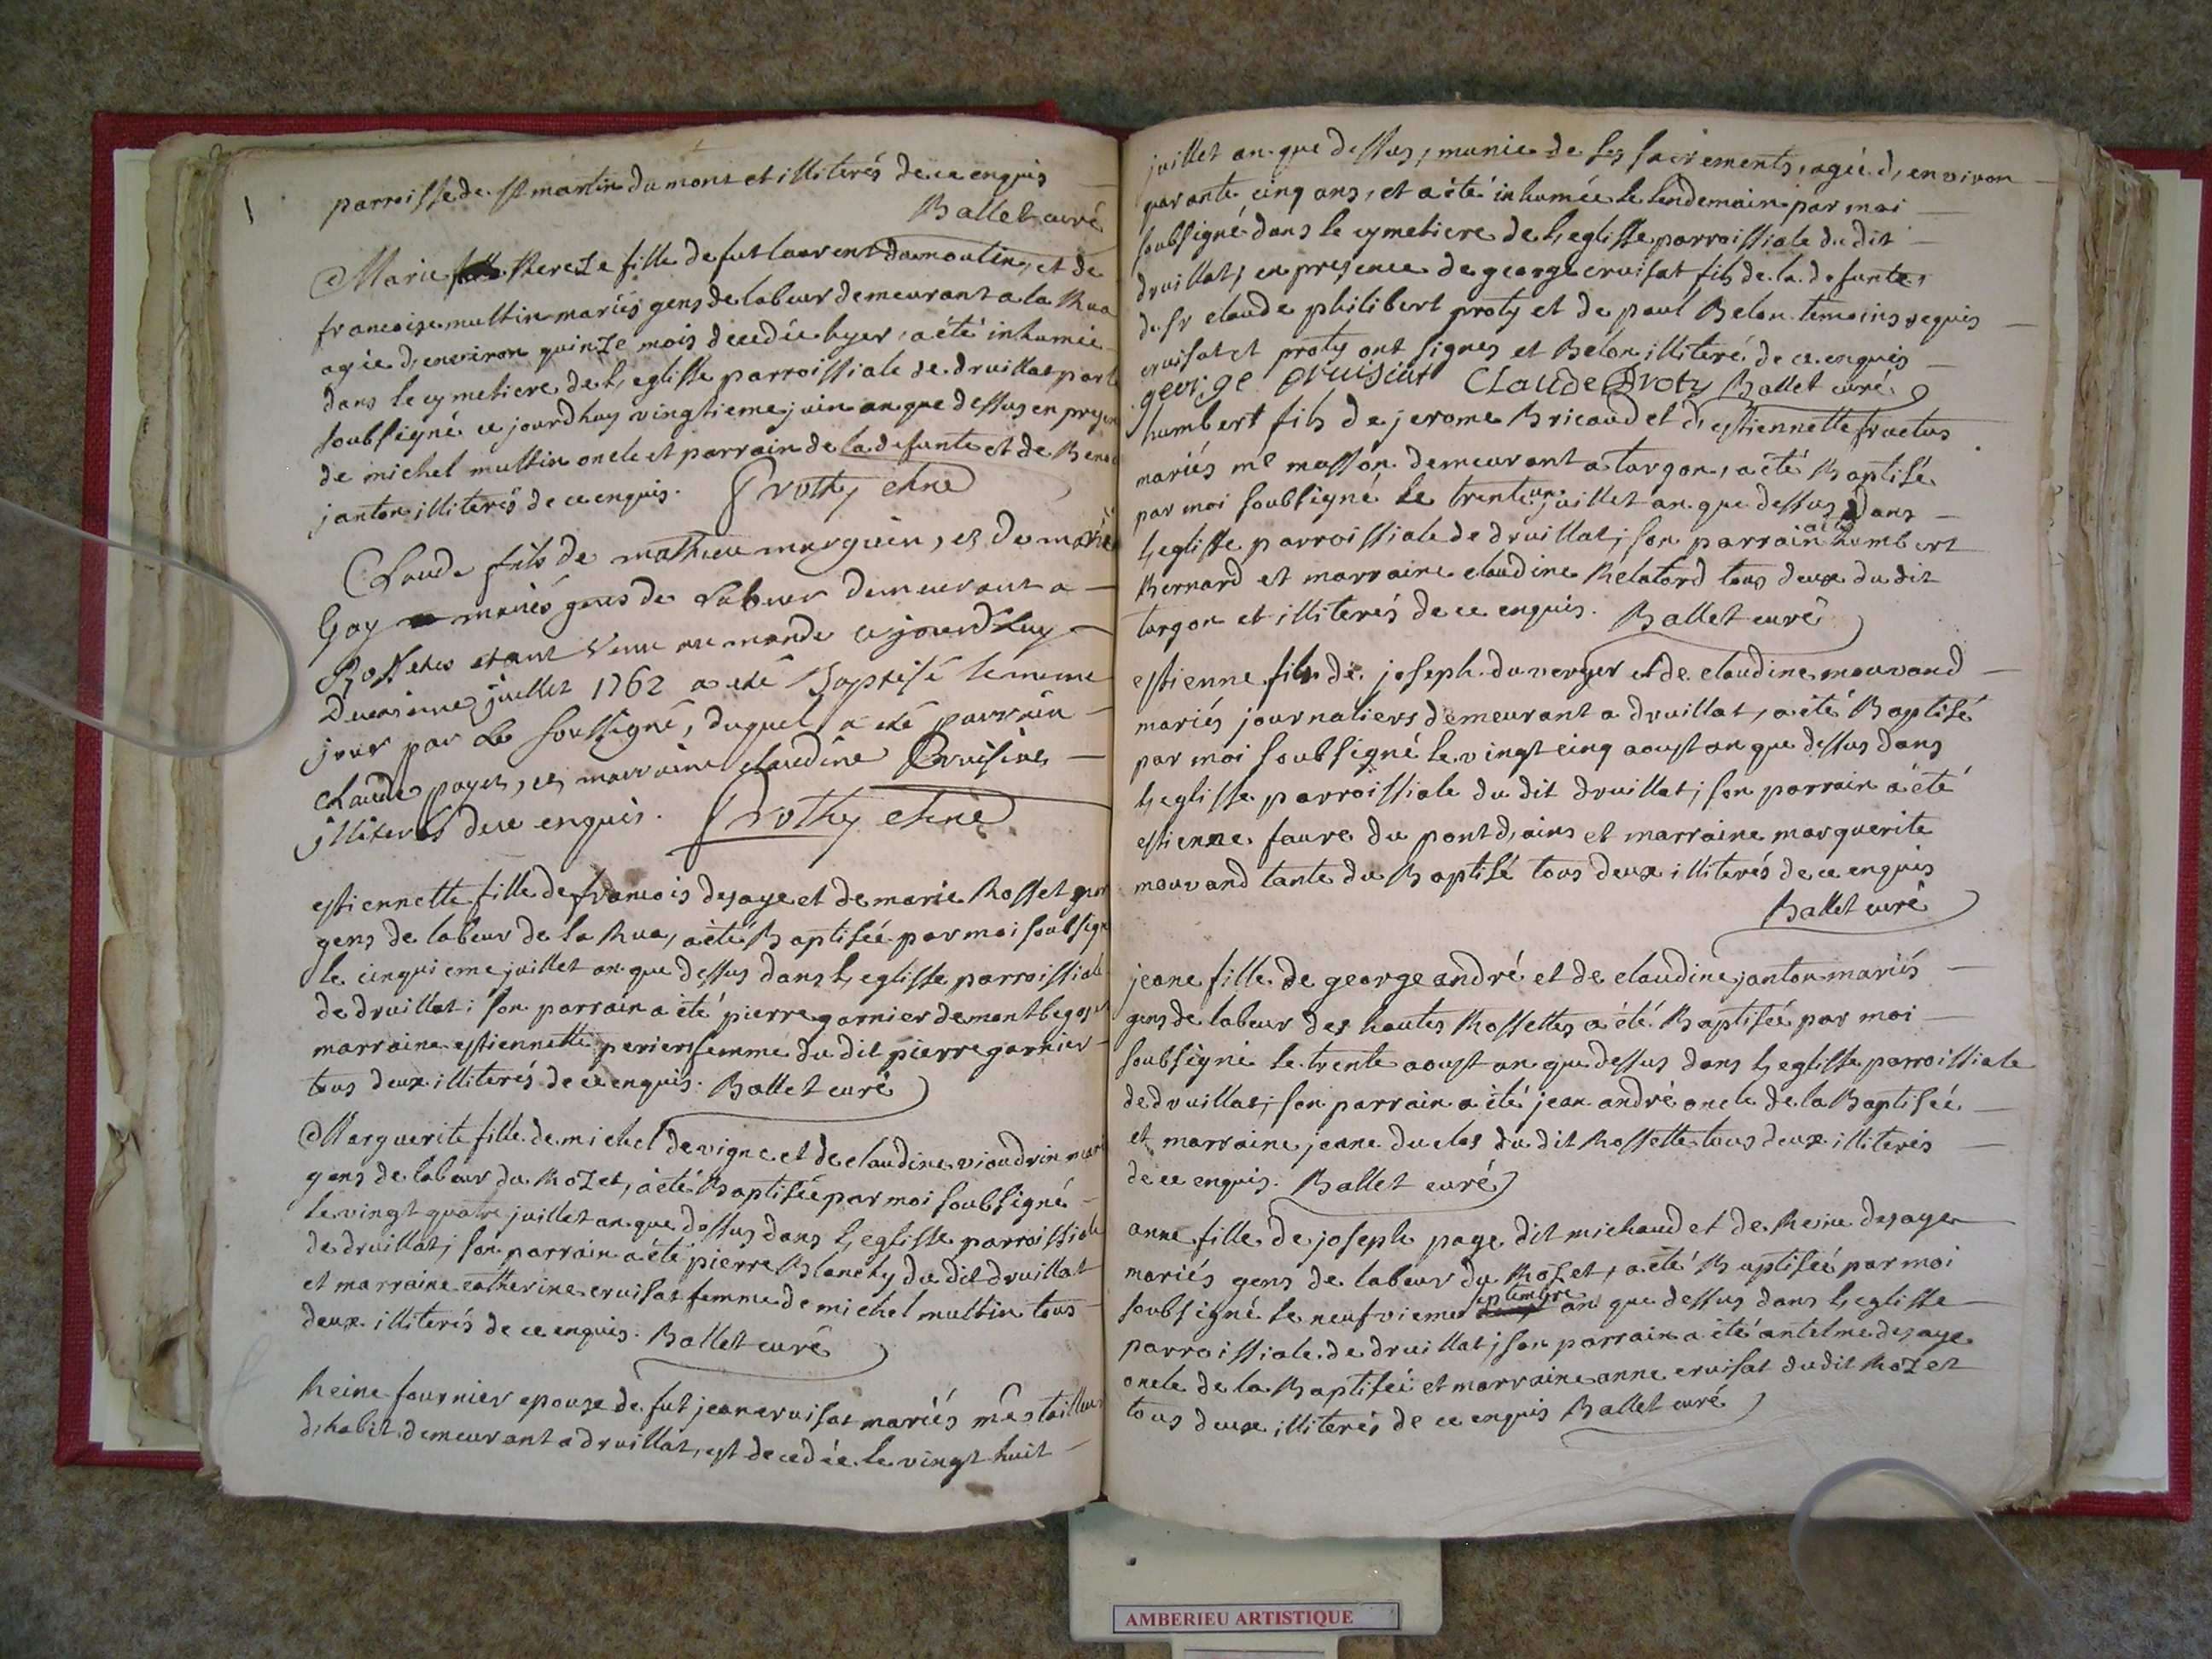 parroisse de st martin du mont et illiterés de ce enquis
Ballet curé
Marie thereze fille de fut laurent dumoulin, et de
francoise multin mariés gens de labeur demeurant a la Rua
agée d'enveiron quinze mois decedée hyer, a été inhumée
dans le cymetiere de l'eglisse parroissiale de druillat par le
soubsigné ce jourdhuy vingtieme juin an que dessus en
de michel multin oncle et parrain de la defunte et de
janton illiterés de ce enquis. Prothy
Claude fils de mathieu marguin, et de marie
Goy mariés gens de Labeur demeurant a
Rossetes etant venu au monde ce jourdhuy
juillet 1762 a eté Baptisé le meme
jour par Le soussigné, duquel a eté parrain
claude payet, et marraine claudine Cruisiat
illiterés de ce enquis. Prothy
estiennette fille de francois desaye et de marie Rosset
gens de labeur de la Rua, a été Baptisée par moi soubsigné
le cinquieme juillet an que dessus dans l'eglisse parroissiale
de druillat; son parrain a été pierre garnier de
marraine estiennette perier femme du dit pierre garnier
tous deux illiterés de ce enquis. Ballet curé
Marguerite fille de michel devigne et de claudine vioudrin
gens de labeur du Rozet, a été Baptisée par moi soubsigné
le vingt quatre juillet an que dessus dans l'eglisse parroissiale
de druillat; son parrain a été pierre Blanchy du dit druillat
et marraine catherine cruisat femme de michel multin tous
deux illiterés de ce enquis. Ballet curé
Reine fournier epouze de fut jean cruisat mariés tailleur
d'habit demeurant a druillat, est decedée le vingt huit
juillet an que dessus, munie de ses sacrements, agée d'environ
quarante cinq ans, et a été inhumée le lendemain par moi
soubsigné dans le cymetiere de l'eglisse parroissiale du dit
druillat, en presence de george cruisat fils de la defunte,
de sr claude philibert proty et de paul Belon temoins requis
cruisat et proty ont signes et Belon illiteré de ce enquis
george cruisiat Claude Proty Ballet curé
humbert fils de jerome Bricaud et d'estiennette fructus
mariés me masson demeurant a turgon, a été Baptisé
par moi soubsigné le trente un juillet an que dessus dans
l'eglisse parroissiale de druillat; son parrain a été humbert
Bernard et marraine claudine Relatord tous deux du dit
turgon et illiterés de ce enquis. Ballet curé
estienne fils de joseph duverger et de claudine mouvand
mariés journaliers demeurant a druillat, a été Baptisé
par moi soubsigné le vingt cinq aoust an que dessus dans
l'eglisse parroissiale du dit druillat; son parrain a été
estienne faure du pont d'ains et marraine marguerite
mouvand tante du Baptisé tous deux illiterés de ce enquis
Ballet curé
jeane fille de george andré et de claudine janton mariés
gens de labeur des hautes Rossettes a été Baptisée par moi
soubsigné le trente aoust an que dessus dans l'eglisse parroissiale
de druillat; son parrain a été jean andré oncle de la Baptisée
et marraine jeane duclos du dit Rossette tous deux illiterés
de ce enquis. Ballet curé
anne fille de joseph page dit michaud et de Reine desaye
mariés gens de labeur du Rozet, a été Baptisée par moi
soubsigné le neufvieme septembre an que dessus dans l'eglisse
parroissiale de druillat; son parrain a été antelme desaye
oncle de la Baptisée et marraine anne cruisat dudit Rozet
tous deux illiterés de ce enquis Ballet curé
AMBERIEU ARTISTIQUE